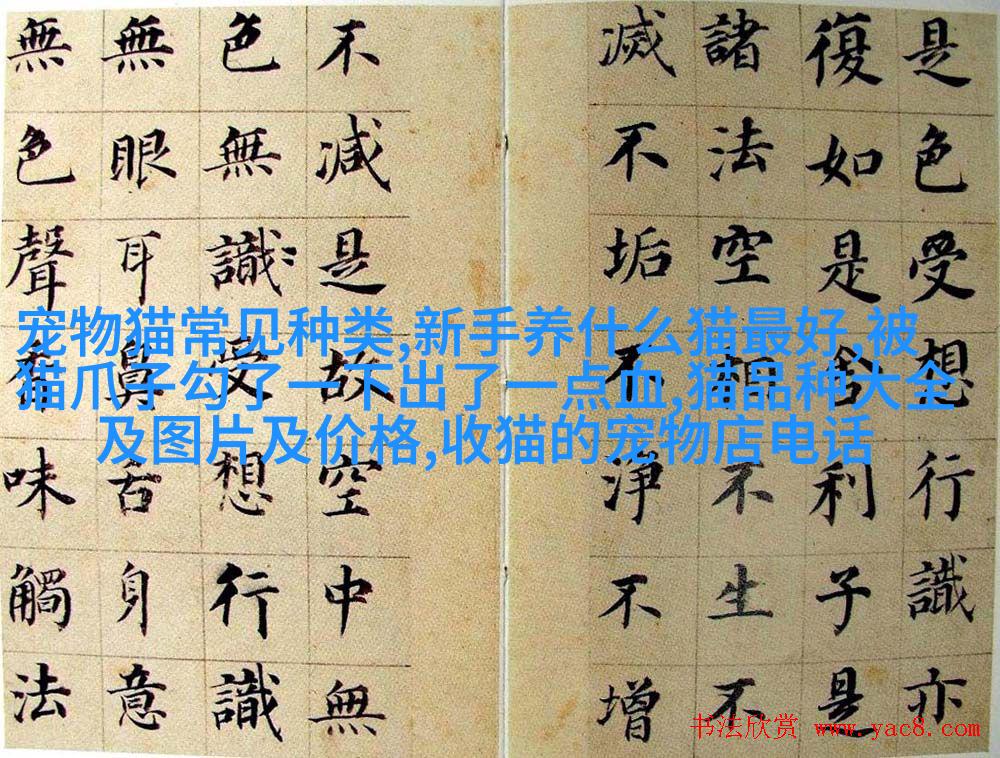 是色受想行識亦
復如是舍利子是
諸法空相不生不
滅不垢不淨不增
不減是故空中無
色無識受想行識
無眼耳鼻舌身意
無色聲香味觸法
宠物猫常见种类,新手养什么猫最好,被
猫爪子勾了一下出了一点血,猫品种大全
及图片及价格,收猫的宠物店电话
书法欣赏 www.yac8.com